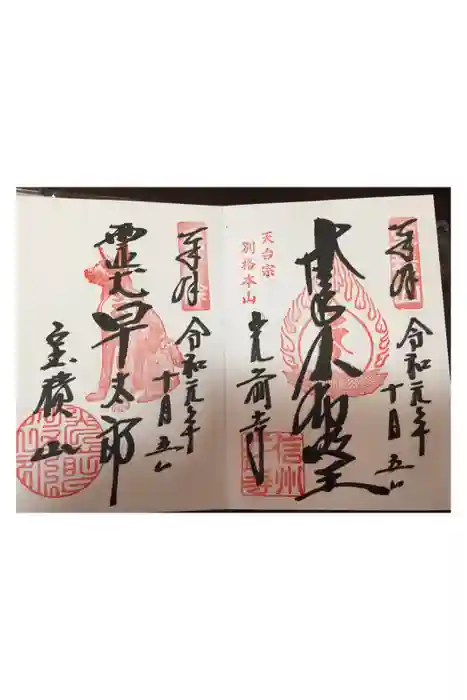 奉拝
令和元年
十月五日
本尊不動明王
天台宗
別格本山
光前寺
信州
奉拝
令和元年
十月五日
霊犬早太郎
宝積山